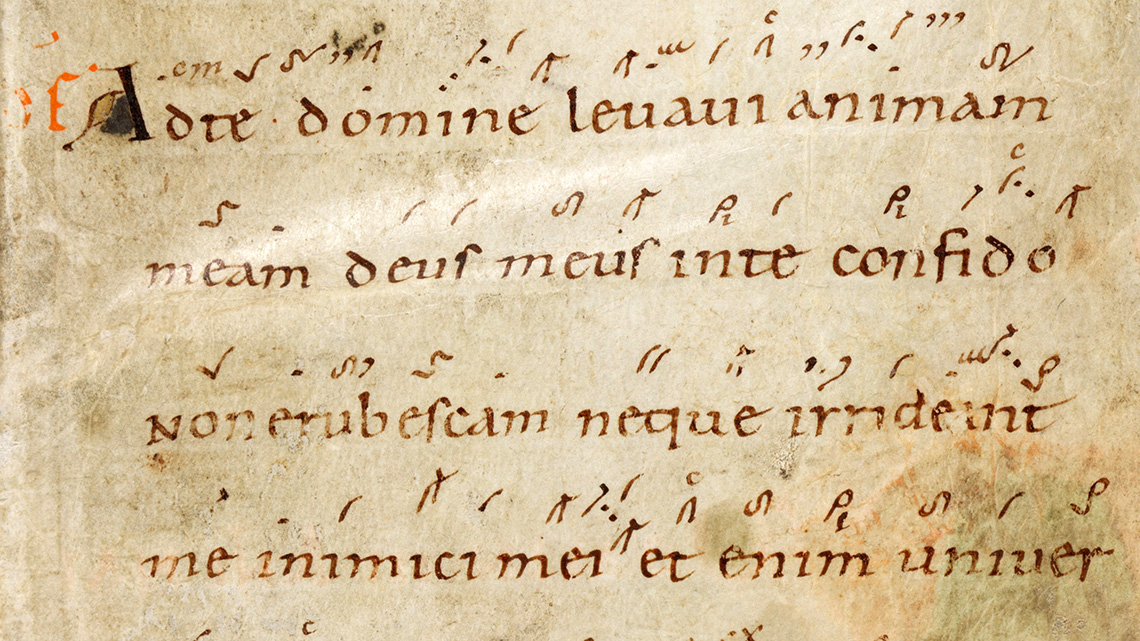 Ad te domine levavi animam
meam deus meus in te confido
Non erubescam neque irrideant
me inimici mei et enim univer